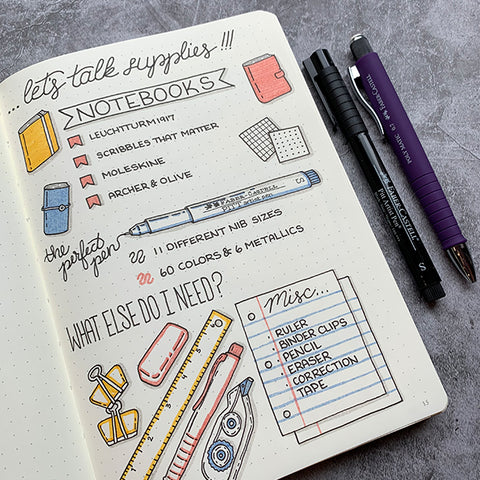 ...let's talk supplies!!!
NOTEBOOKS
LEUCHTTURM1917
SCRIBBLES THAT MATTER
MOLESKINE
ARCHER & OLIVE
the perfect pen
S FABER CASTELL
Pitt artist pen
11 DIFFERENT NIB SIZES
60 COLORS & 6 METALLICS
WHAT ELSE DO I NEED?
Misc...
RULER
BINDER CLIPS
PENCIL
ERASER
CORRECTION
TAPE
1 2 3 4 5 6
13
FABER-CASTELL
Pitt Artist Pen
S
POLY MATIC 0.7 FABER-CASTELL